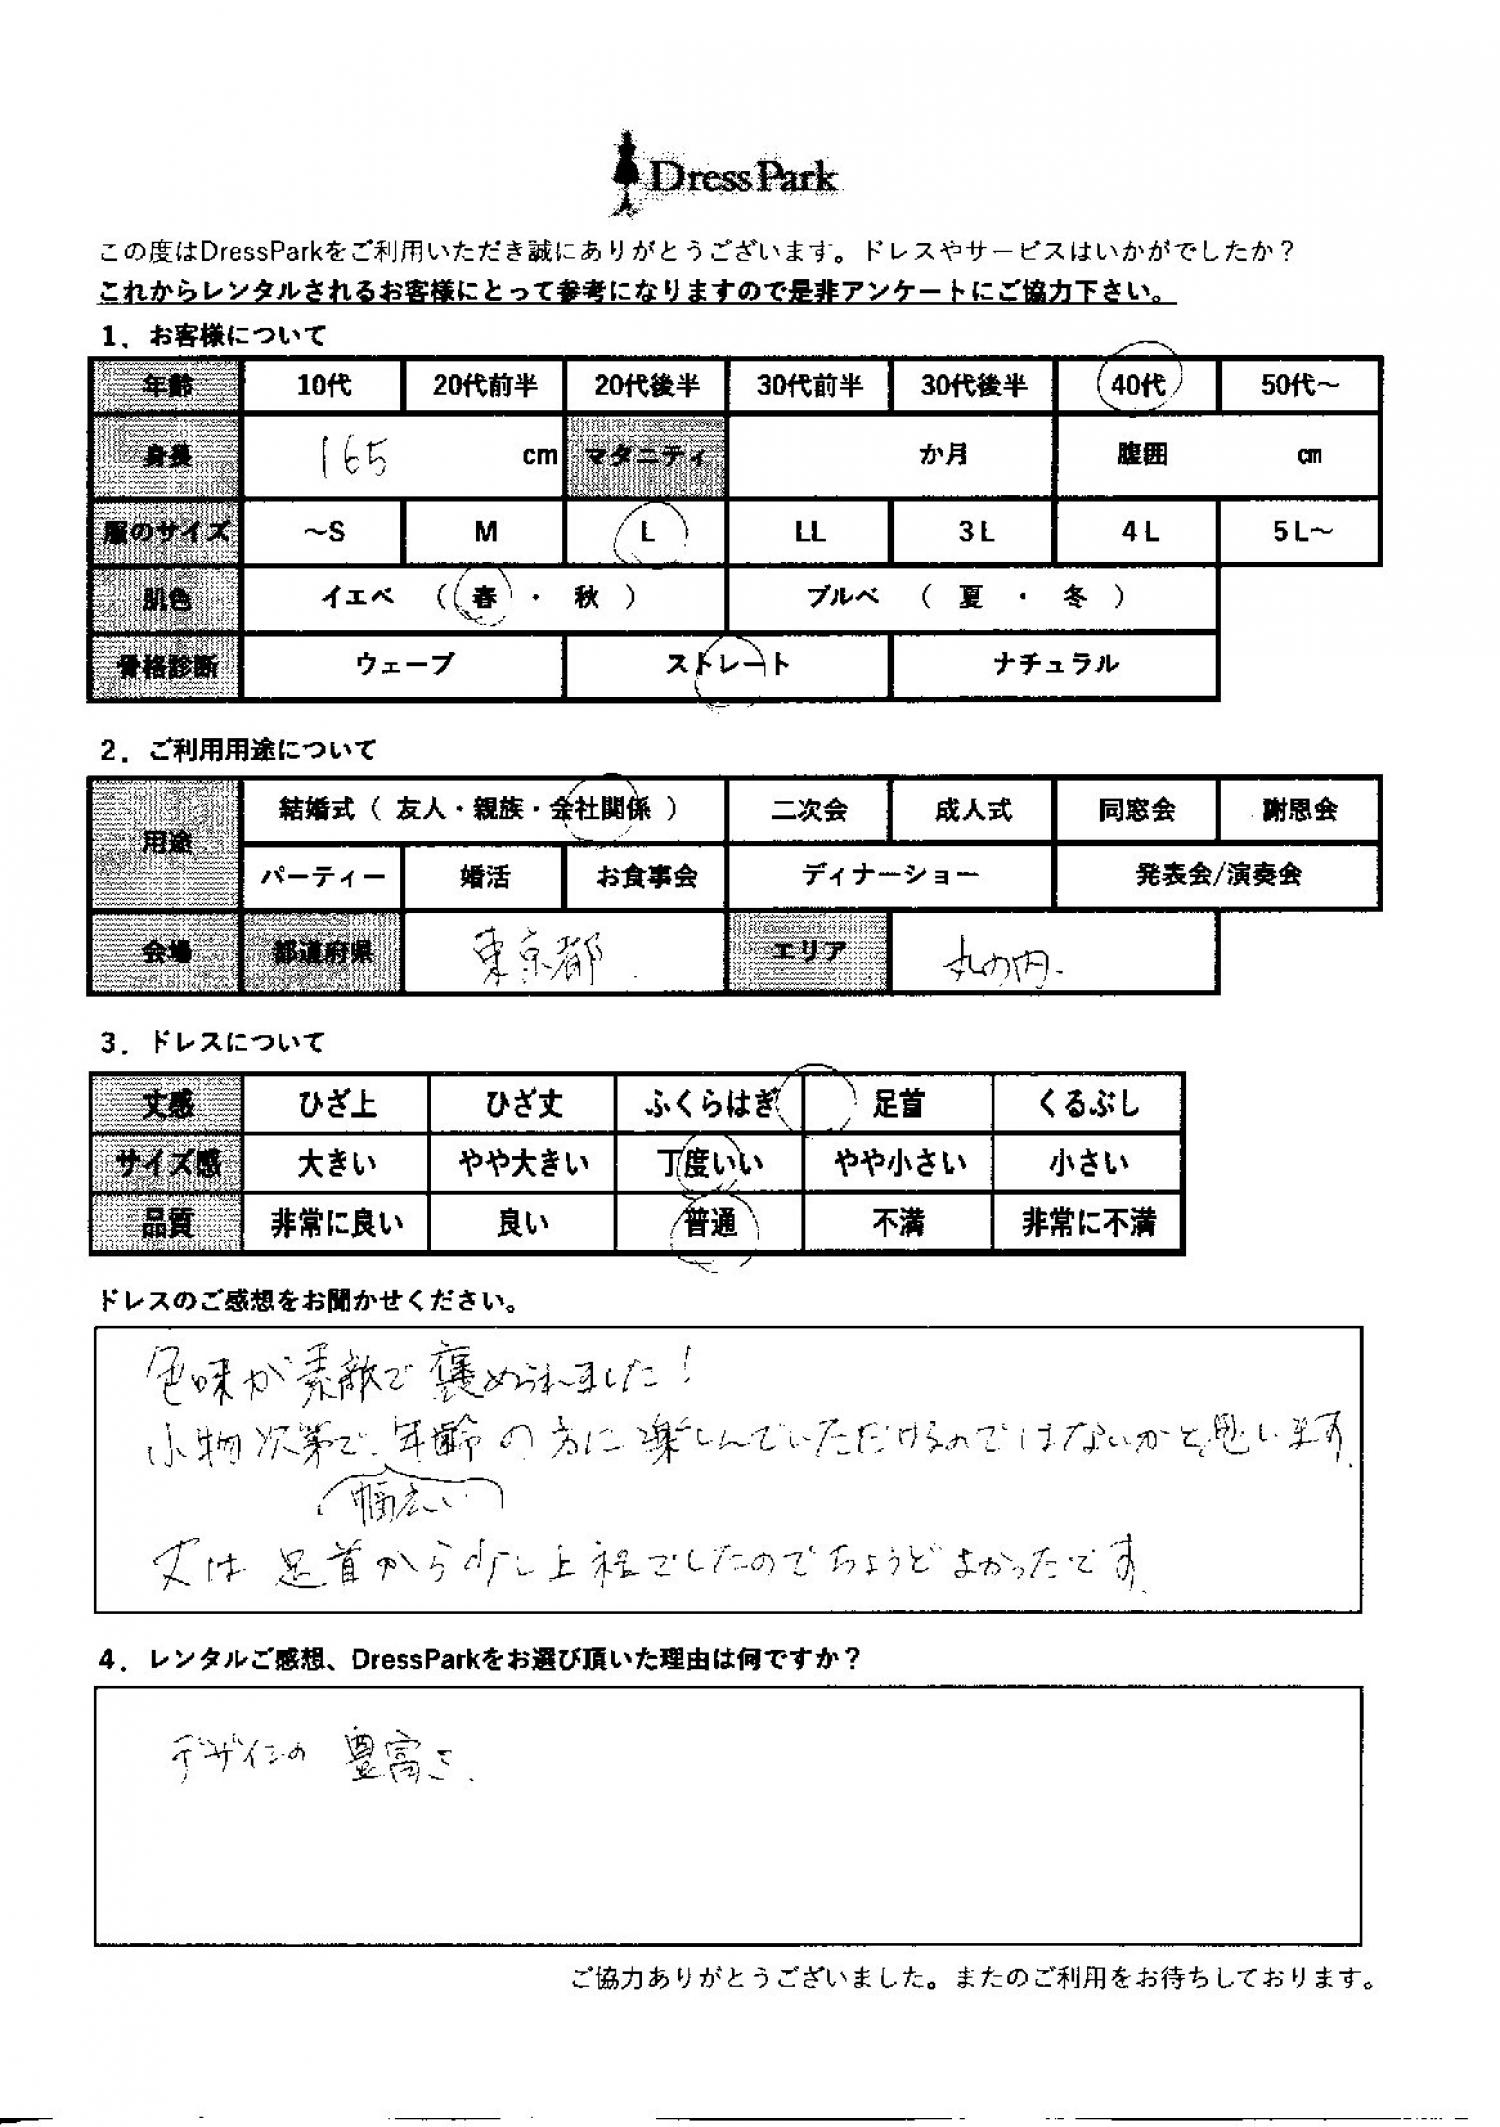 DressPark
この度はDressParkをご利用いただき誠にありがとうございます。ドレスやサービスはいかがでしたか？
これからレンタルされるお客様にとって参考になりますので是非アンケートにご協力下さい。
1．お客様について
年齢 10代 20代前半 20代後半 30代前半 30代後半 40代 50代～
身長 165 cm マタニティ か月 腹囲 cm
服のサイズ ～S M L LL 3L 4L 5L～
肌色 イエベ （ 春 ・ 秋 ） ブルベ （ 夏 ・ 冬 ）
骨格診断 ウェーブ ストレート ナチュラル
2．ご利用用途について
用途 結婚式（ 友人・親族・会社関係 ） 二次会 成人式 同窓会 謝恩会
パーティー 婚活 お食事会 ディナーショー 発表会/演奏会
会場 都道府県 東京都 エリア 丸の内
3．ドレスについて
丈感 ひざ上 ひざ丈 ふくらはぎ 足首 くるぶし
サイズ感 大きい やや大きい 丁度いい やや小さい 小さい
品質 非常に良い 良い 普通 不満 非常に不満
ドレスのご感想をお聞かせください。
色味が素敵で褒められました！
小物次第で、年齢の方に楽しんでいただけるのではないかと思います。
幅広い
丈は足首から少し上程でしたのでちょうどよかったです。
4．レンタルご感想、DressParkをお選び頂いた理由は何ですか？
デザインの豊富さ。
ご協力ありがとうございました。またのご利用をお待ちしております。